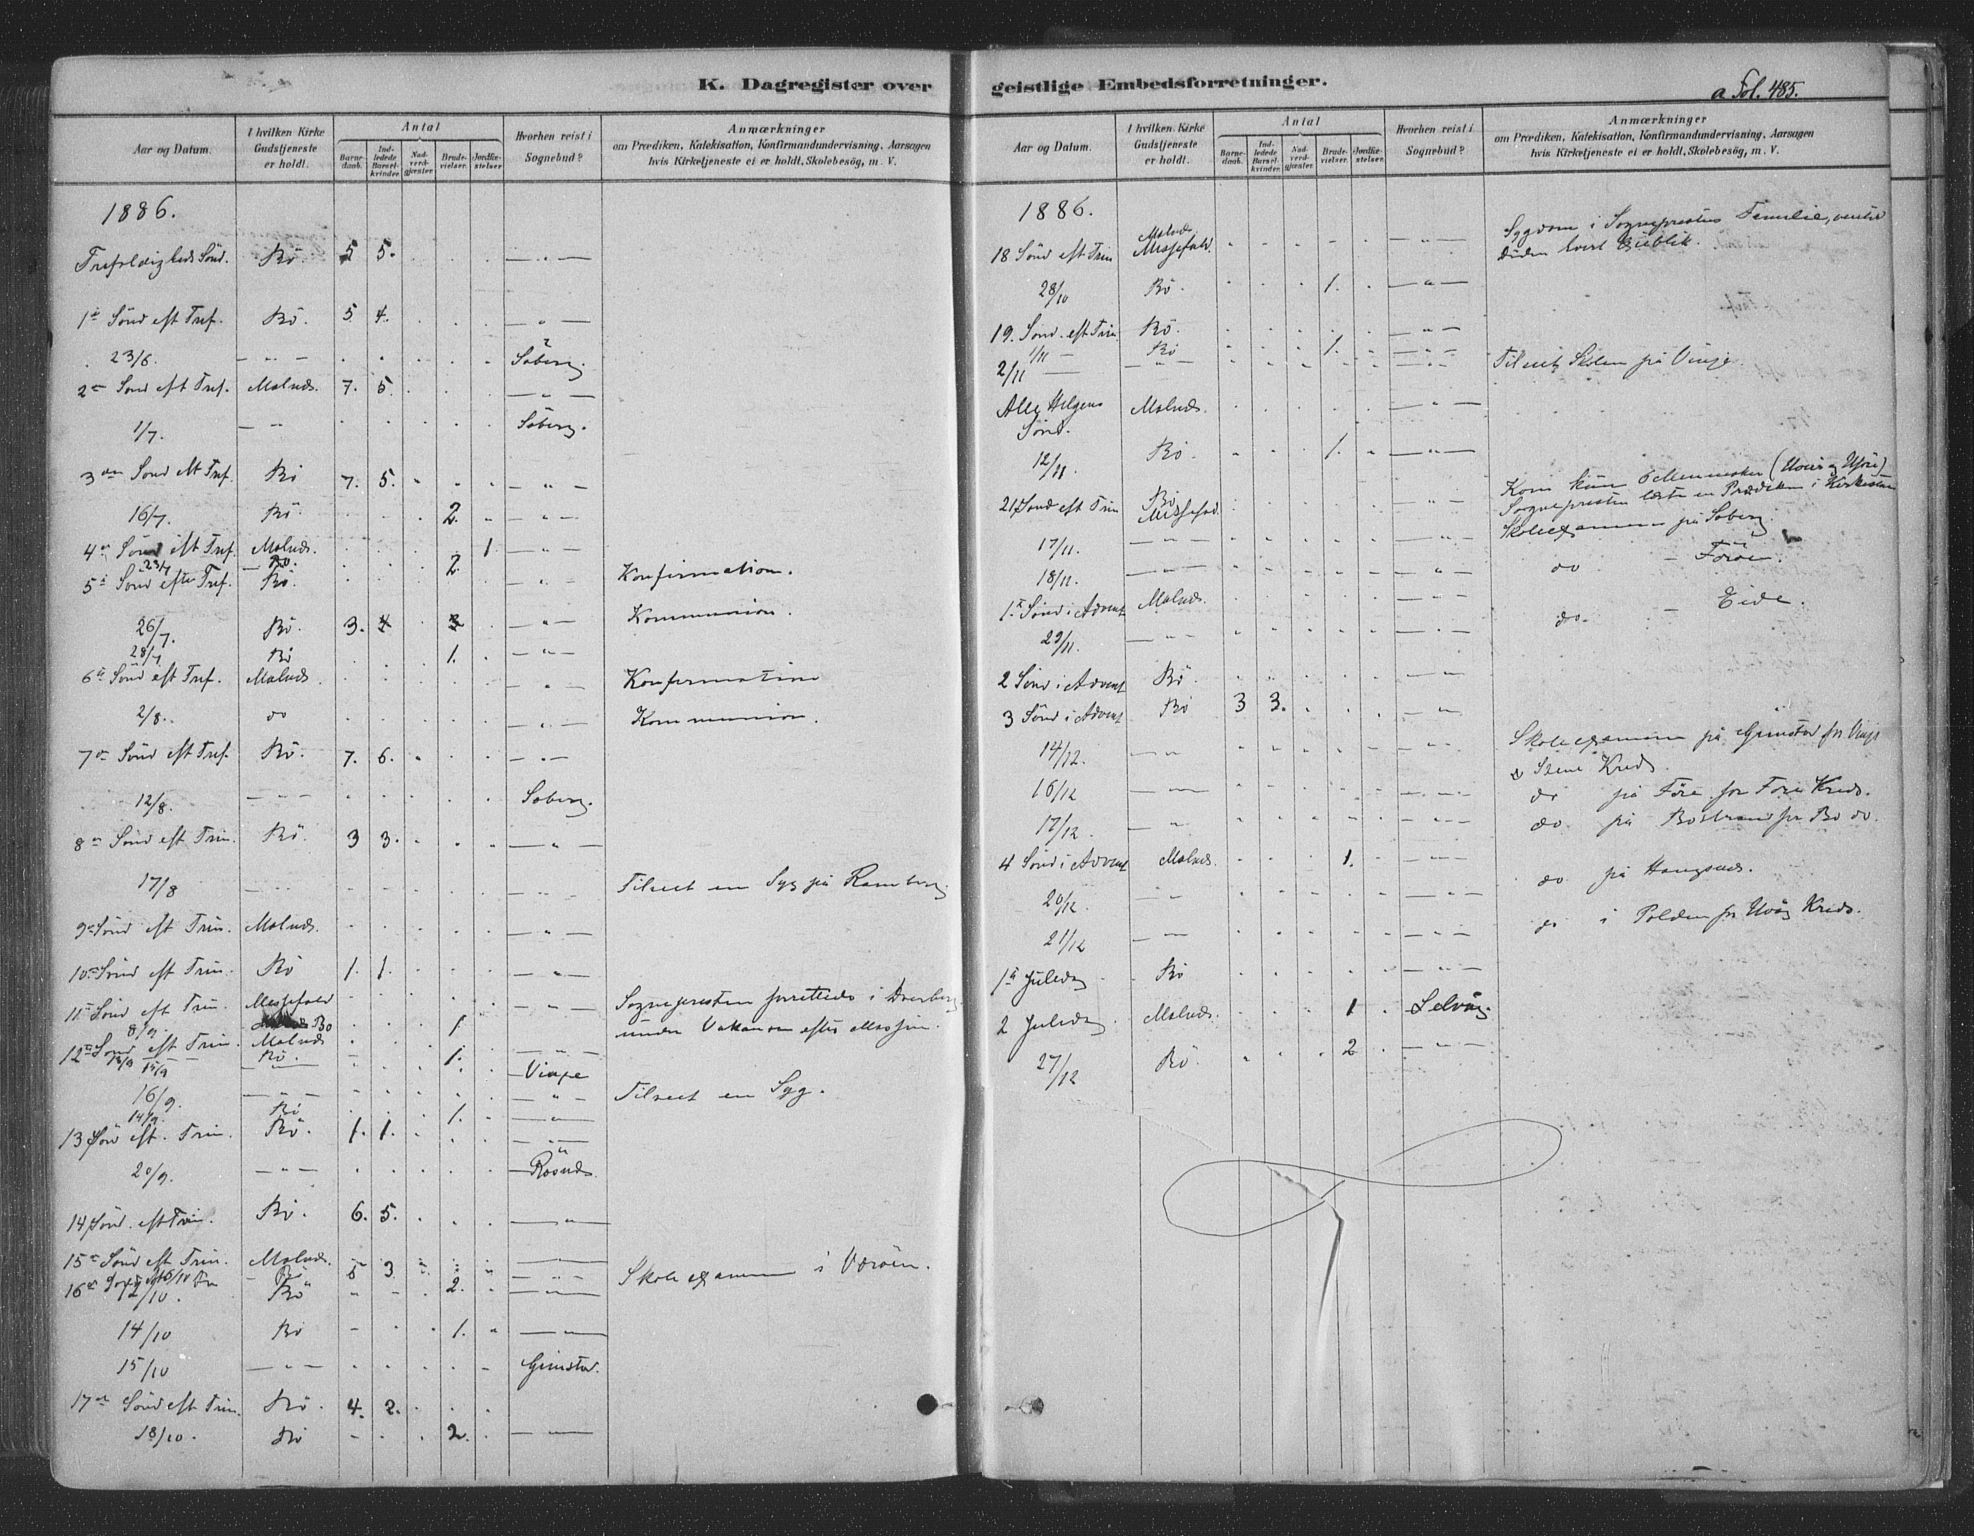 K. Dagregister over geistlige Embedsforretninger.
a Fol. 485.
Aar og Datum.
I hvilken Kirke Gudstjeneste er holdt.
Antal
Barnedaab.
Indledede Barselkvinder.
Nadverdgjæster.
Brudevielser.
Jordfæstelser.
Hvorhen reist i Sognebud?
Anmærkninger
om Prædiken, Katekisation, Konfirmandundervisning, Aarsagen
hvis Kirketjeneste ei er holdt, Skolebesög, m. V.
1886.
Trefoldigheds Sönd. Bö 5 5. — " —
1ste Sönd eft Tref. Bö. 5 4. . . . — " —
23/6. — " — . . . . . Söberg.
2en Sönd eft Tref. Malnæs. 7. 5. . . . — " —
1/7. — " . . . . . Söberg.
3die Sönd eft Tref. Bö 7. 5. . . . — " —
16/7. Bö. . . . 2. . — " —
4de Sönd eft Tref. Malnæs. . . . . 1 — " —
23/7 — Bö. . . . 2.
5te Sönd efter Tref. Bö. Konfirmation.
26/7. Bö. 3. 4 . 3 . — " — Kommunion.
28/7 Bö . . . 1. . — " —
6te Sönd eft Tref. Malnæs. . . . . . — " — Konfirmation
2/8. do . . . . . — " — Kommunion.
7de Sönd eft Tref. Bö. 7. 6. . . . — " —
12/8. — " — . . . . . Söberg.
8de Sönd eft Trin. Bö 3 3. . . . — " —
17/8 — " — . . . . . — " — Tilseet en Syg på Ramberg.
9de Sönd eft Trin. Malnæs. . . . . . — " —
10de Sönd eft Trin. Bö 1. 1. . . . — " —
11te Sönd eft Trin. Messefald . . . . . — " — Sognepresten forrettede i Dverberg
8/9. Bö . . . 1. . under Vakansen efter
12te Sönd eft Trin. Malnæs . . . . . — " —
Bö. . . . 1.
15/9 — " — . . . . . Vinje
16/9. — " — . . . . . — " — Tilseet en Syg.
14/9. Bö . . . 1. . — " —
13 Sön eft. Trin. Bö. 1. 1. . . . — " —
20/9. — " — . . . . . Rösnæs.
14 Sönd. eft Trin. Bö. 6. 5. . . . — " —
15de Sönd eft Trin. Malnæs. . . . . . — " —
16de Bö 5 3 . . . — " — Skoleexamen iVæröen.
12/10. Bö . . . 2. . — " —
14/10 Bö . . . 1. . — " —
15/10 — " — . . . . . Grimstad.
17de Sönd eft Trin. Bö. 4. 2. . . .
18/10. Bö . . . 2. . — " —
Aar og Datum.
I hvilken Kirke Gudstjeneste er holdt.
Antal
Barnedaab.
Indledede Barselkvinder.
Nadverdgjæster.
Brudevielser.
Jordfæstelser.
Hvorhen reist i Sognebud?
Anmærkninger
om Prædiken, Katekisation, Konfirmandundervisning, Aarsagen
hvis Kirketjeneste ei er holdt, Skolebesög, m. V.
1886.
18 Sönd eft Trin Malnæs. Messefald . . . . . — " — Sygdom i Sogneprestens Familie, ventede
Döden hvert Öieblik.
28/10 Bö. . . . 1. . — " —
19. Sönd. eft Trin Bö. . . . . . — " —
1/11 — Bö . . . 1. . — " —
2/11 — — " — . . . . . — " — Tilseet Skolen på Vinje.
Alle Helgens Sönd. Malnæs. . . . . . — " —
12/11. Bö. . . . 1. . — " —
21. Sönd eft Trin Bö Messefald. . . . . . — " — Kom kun 6 Mennesker
Sognepresten læste en Prædiken i Kirkestuen
17/11. — " — . . . . . — " — Skoleexamen på Söberg.
18/11. — " — . . . . . — " — do — Föröen.
1ste Sönd i Advent Malnæs. . . . . . — " —
29/11. — " — . . . . . — " — do. — Eide.
2 Sönd i Advent Bö. . . . . . — " —
3 Sönd i Advent Bö 3 3. . . . — " —
14/12. — " — . . . . . — " — Skoleexamen på Grimstad for Vinje
& Steine Kreds.
16/12 — " — . . . . . — " — do på Före for Före Kreds.
17/12 — " — . . . . . — " — do på Böstrand for Bö do.
4 Sönd i Advent Malnæs. . . . 1. . — " —
20/12 — " — . . . . . — " — do på Haugsnæs.
21/12 — " — . . . . . — " — do i Polden for Uvåg Kreds.
1ste Juledag Bö . . . . . — " —
2 Juledag Malnæs. . . . 1 . Selvåg.
27/12 Bö. . . . 2 . — " —